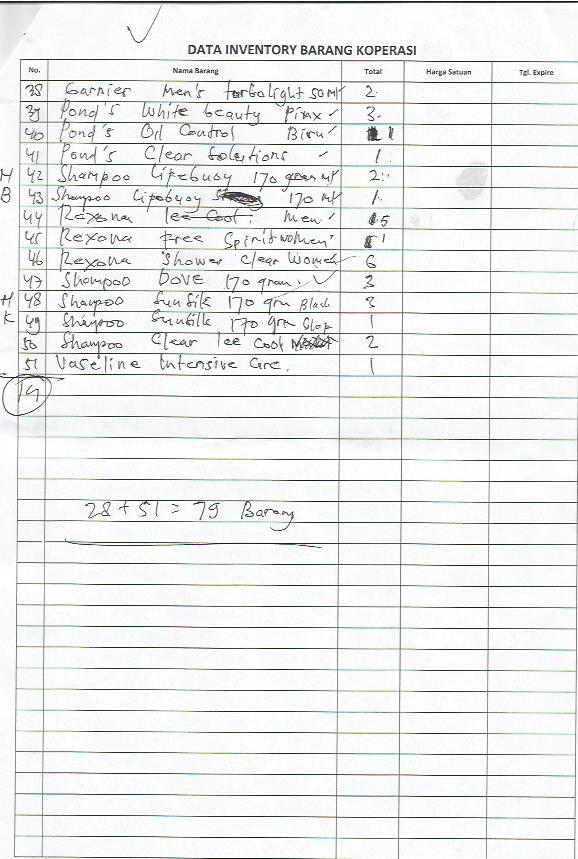 DATA INVENTORY BARANG KOPERASI
No. Nama Barang Total Harga Satuan Tgl. Expire
38 Garnier Men's turbolight 50 Ml 2
39 Pond's White beauty Pinx 3
40 Pond's Oil Control Biru 1
41 Pond's Clear Solustions 1
H 42 Shampoo Lipebuoy 170 gram 2
B 43 Shampoo Lipebuoy 170 Ml 1
44 Rexona Ice Cool Men 5
45 Rexona Free Spirit Women 1
46 Rexona Shower Clear Women 6
47 Shampoo DOVE 170 gram 3
H 48 Shampoo Sunsilk 170 grm Black 3
K 49 Shampoo Sunsilk 170 grm 1
50 Shampoo Clear Ice Cool 2
51 Vaseline Intensive Care. 1
14
28 + 51 = 79 Barang